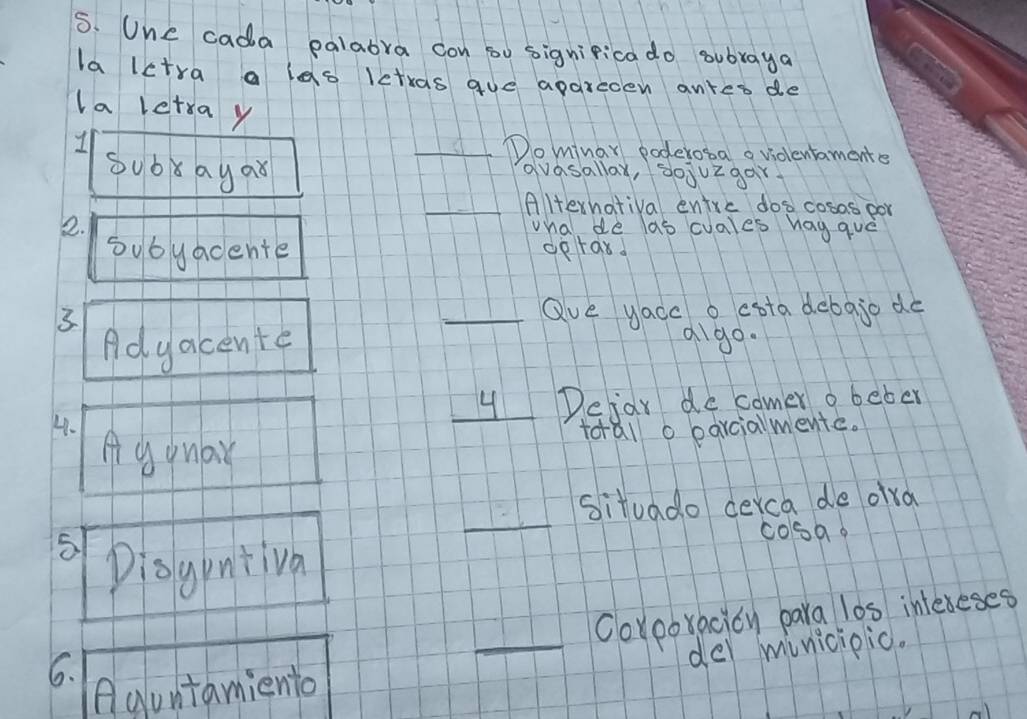 5. Une cada palabra con su significado subraya
la letra o las letras que aparecen antes de
la letra y
1 Subrayar
2. Subyacente
3. Adyacente
4. Ayunar
5 Disyuntiva
6. Ayuntamiento
Dominar poderosa o violentamente
avasallar, sojuzgar.
Alternativa entre dos cosas por
una de las cuales hay que
optar.
Que yace o esta debajo de
algo.
4 Dejar de comer o beber
total o parcialmente.
Situado cerca de otra
cosa.
Corporación para los intereses
del municipio.